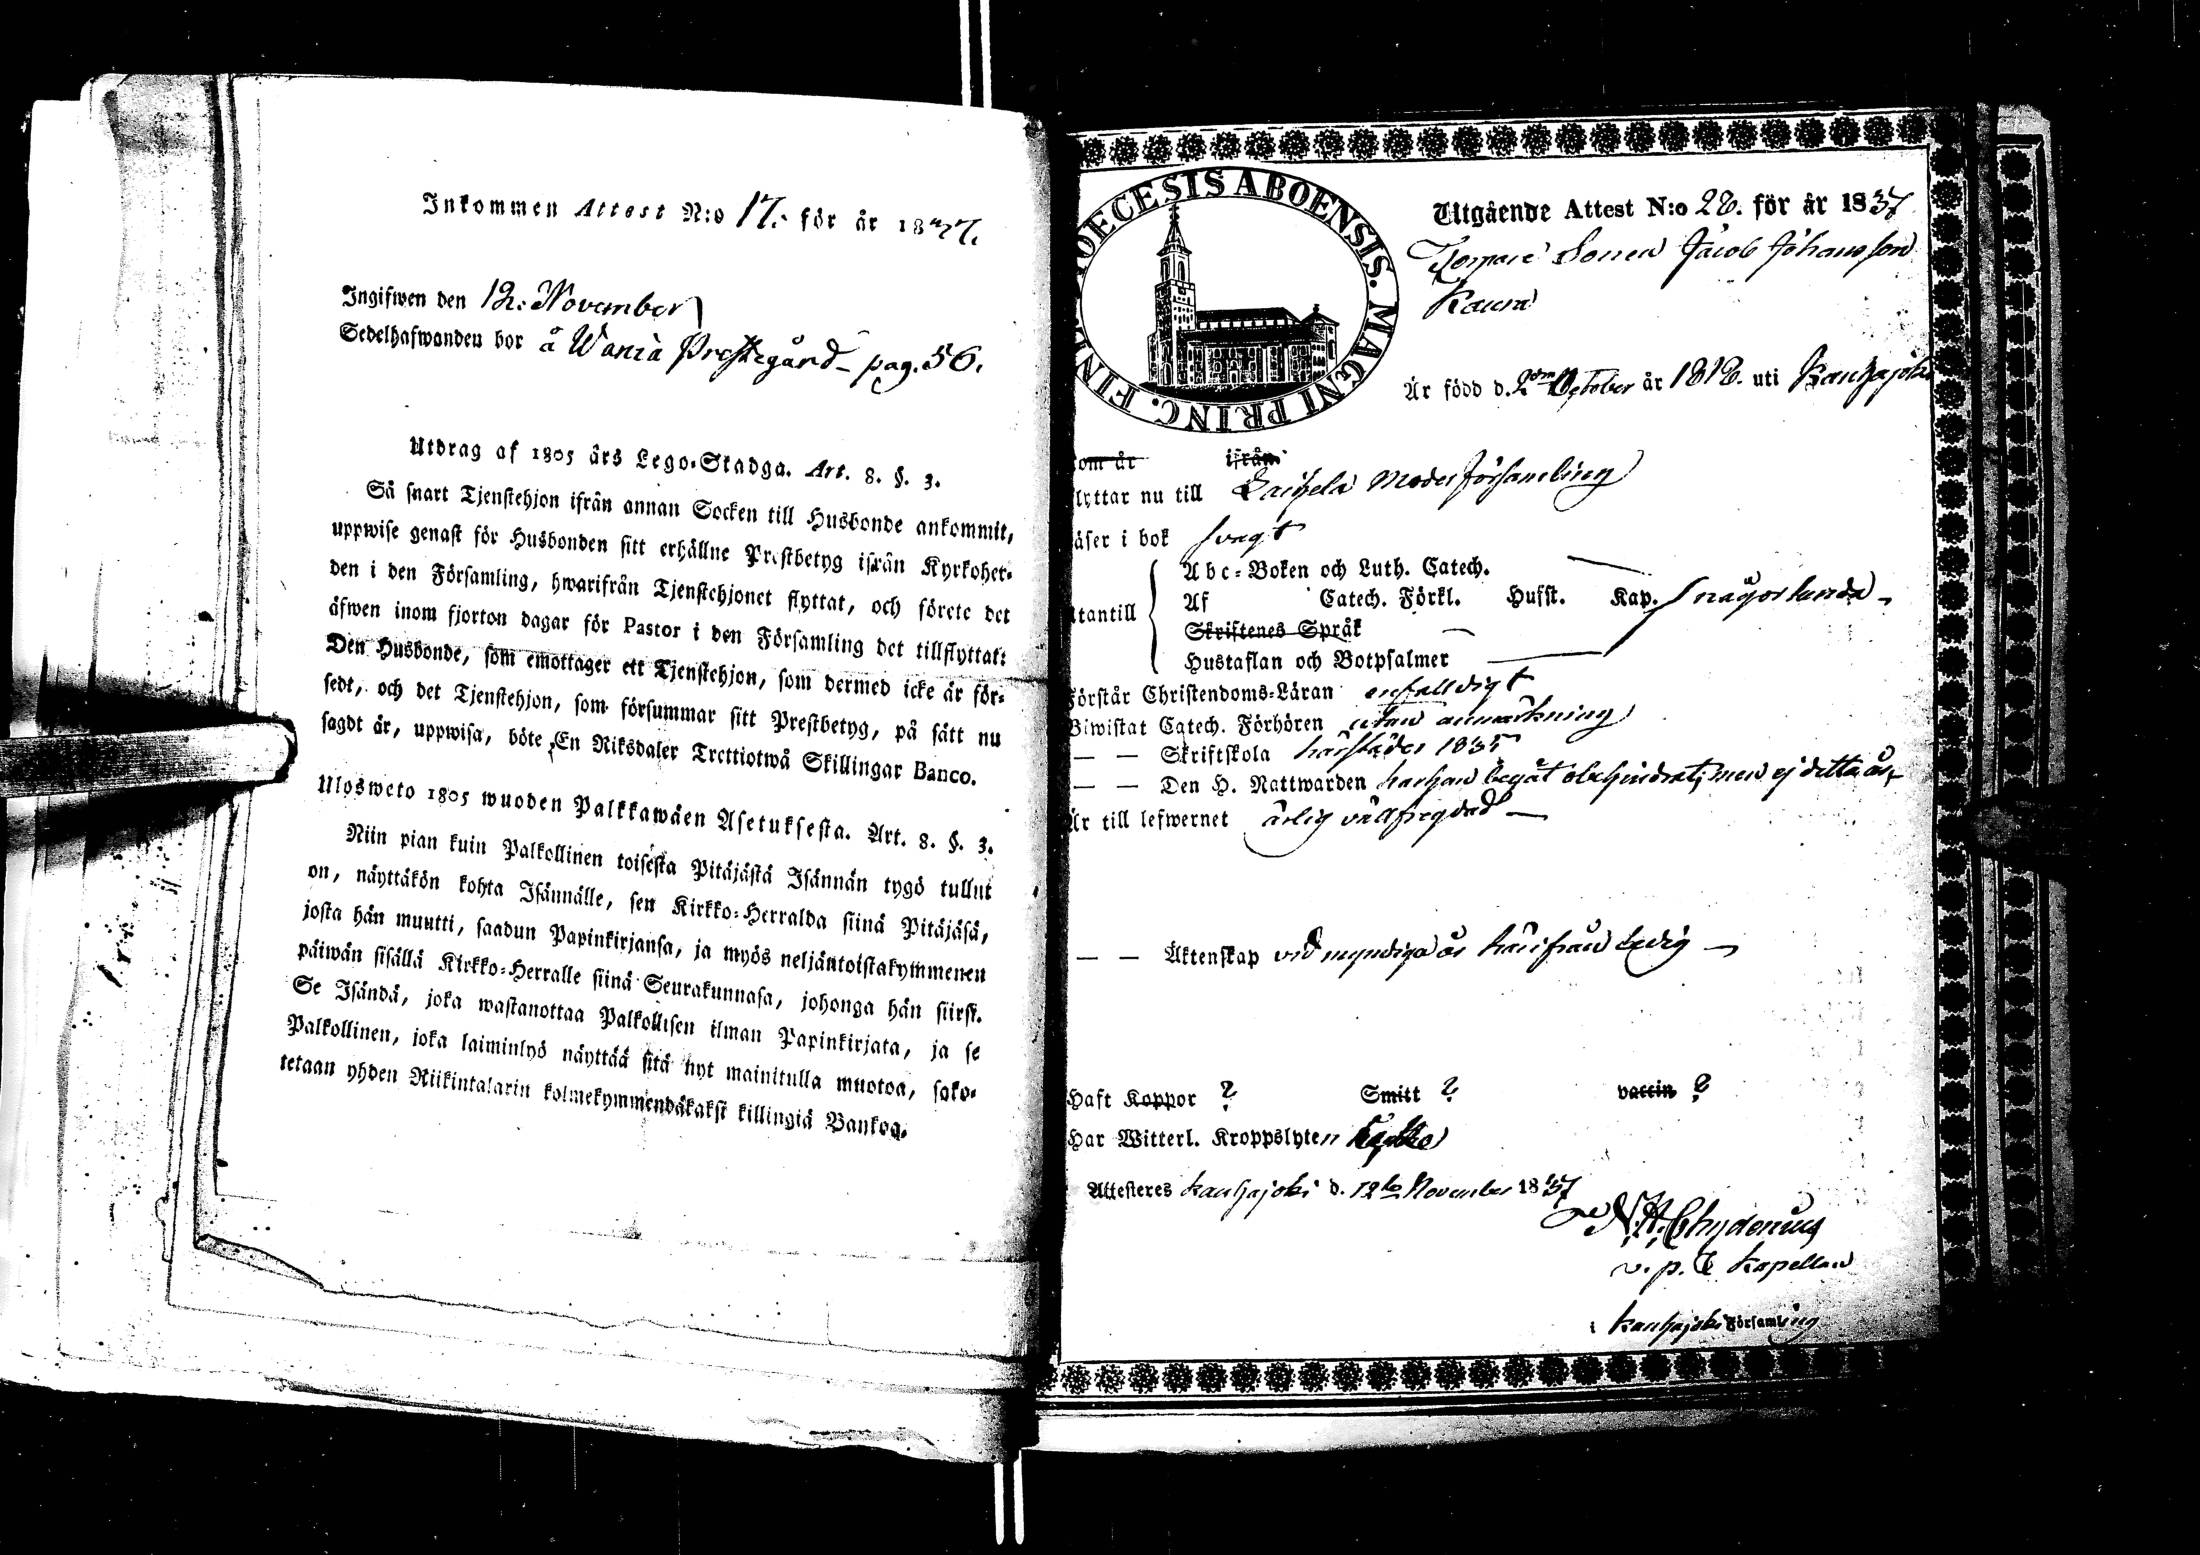 Inkommen Attest N:o 17. för år 1837.
Ingifwen den 12. November
Sedelhafwanden bor å Wanza Prestegård - pag. 56.
Utdrag af 1805 års Lego-Stadga. Art. 8. §. 3.
Så snart Tjenstehjon ifrån annan Socken till Husbonde ankommit,
uppwise genast för Husbonden sitt erhällne Prestbetyg ifrån Kyrkoher-
den i den Församling, hwarifrån Tjenstehjonet flyttat, och förete det
äfwen inom fjorton dagar för Pastor i den Församling det tillflyttat:
Den Husbonde, som emottager ett Tjenstehjon, som dermed icke är för-
sedt, och det Tjenstehjon, som försummar sitt Prestbetyg, på sätt nu
sagdt är, uppwisa, böte En Riksdaler Trettiotwå Skillingar Banco.
Ulosweto 1805 wuoden Palkkawäen Asetuksesta. Art. 8. §. 3.
Niin pian kuin Palkollinen toisesta Pitäjästä Isännän tygö tullut
on, näyttäkön kohta Isännälle, sen Kirkko-Herralda siinä Pitäjäsä,
josta hän muutti, saadun Papinkirjansa, ja myös neljäntoistakymmenen
päiwän sisällä Kirkko-Herralle siinä Seurakunnasa, johonga hän siirsi.
Se Isändä, joka wastanottaa Palkollisen ilman Papinkirjata, ja se
Palkollinen, joka laiminlyö näyttää sitä nyt mainitulla muotoa, sako-
tetaan yhden Riikintalarin kolmekymmendäkaksi killingiä Bankoa.
DIOECESIS ABOENSIS. MAGNI PRINC. FINL.
Utgående Attest N:o 28. för år 1837
Sonen Jacob Johansson
Kaura
Är född d. 2dra October år 1818. uti Kauhajoki
om år ifrån
lyttar nu till Laihela Moderförsamling
äser i bok svagt
Abc-Boken och Luth. Catech.
tantill Af Catech. Förkl. Husst. Kap. någorlunda
Skriftenes Språk
Hustaflan och Botpsalmer
förstår Christendoms-Läran enfaldigt
Biwistat Catech. Förhören utan anmärkning
— — Skriftskola härstädes 1835
— — Den H. Nattwarden har han begåt obehindrat, men ej detta år,
Är till lefwernet ärlig välfregdad
— — Äktenskap vid myndiga år härifrån ledig
Haft Koppor ? Smitt ? vaccin ?
Har Witterl. Kroppslyten
Attesteres Kauhajoki d. 12te November 1837
N. A. Chydenius
v. p. Kapellan
i Kauhajoki Församling